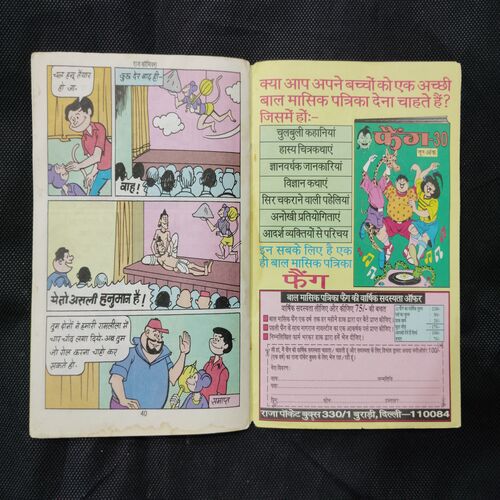 राज कॉमिक्स
चल हनु तैयार
हो जा.
कुछ देर बाद ही-
वाह!
ये तो असली हनुमान है!
तुम दोनों ने हमारी रामलीला में
चार चांद लगा दिये. अब तुम
जो रोल करना चाहो कर
सकते हो.
समाप्त
40
क्या आप अपने बच्चों को एक अच्छी
बाल मासिक पत्रिका देना चाहते हैं?
जिसमें हों:-
चुलबुली कहानियां
हास्य चित्रकथाएं
ज्ञानवर्धक जानकारियां
विज्ञान कथाएं
सिर चकराने वाली पहेलियां
अनोखी प्रतियोगिताएं
आदर्श व्यक्तियों से परिचय
इन सबके लिए है एक
ही बाल मासिक पत्रिका
फैंग
फैंग-30
बाल मासिक पत्रिका फैंग की वार्षिक सदस्यता ऑफर
वार्षिक सदस्यता लीजिए और कीजिए 75/- की बचत
राजा पॉकेट बुक्स 330/1 बुराड़ी, दिल्ली-110084